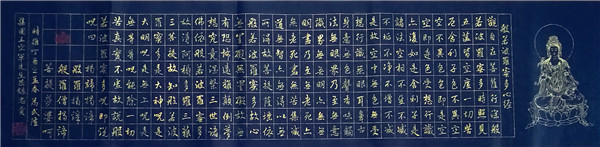 般若波羅蜜多心經
觀自在菩薩行深般
若波羅蜜多時照見
五蘊皆空度一切苦
厄舍利子色不異空
空不異色色即是空
空即是色受想行識
亦復如是舍利子是
諸法空相不生不滅
不垢不淨不增不減
是故空中無色無受
想行識無眼耳鼻舌
身意無色聲香味觸
法無眼界乃至無意
識界無無明亦無無
明盡乃至無老死亦
無老死盡無苦集滅
道無智亦無得以無
所得故菩提薩埵依
般若波羅蜜多故心
無罣礙無罣礙故無
有恐怖遠離顛倒夢
想究竟涅槃三世諸
佛依般若波羅蜜多
故得阿耨多羅三藐
三菩提故知般若波
羅蜜多是大神呪是
大明呪是無上呪是
無等等呪能除一切
苦真實不虛故說般
若波羅蜜多呪即說
呪曰
揭諦揭諦
般羅揭諦
般羅僧揭諦
菩提薩婆訶
丁酉之孟春